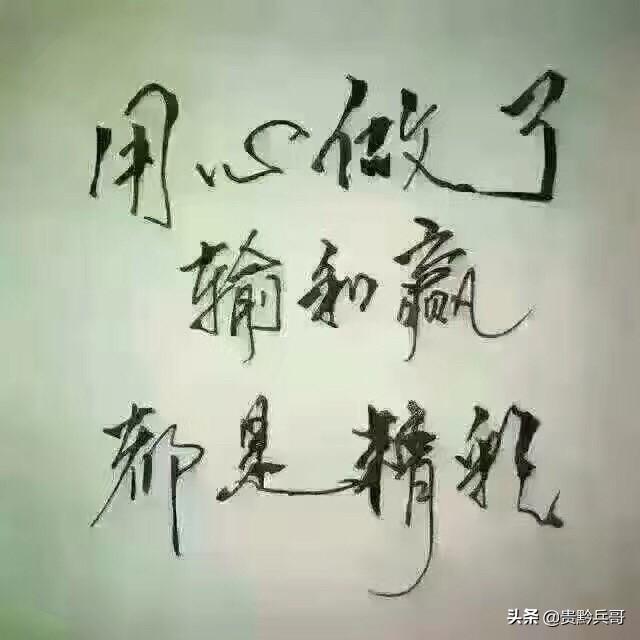 用心做了
输和赢
都是精彩
头条 @贵黔兵哥